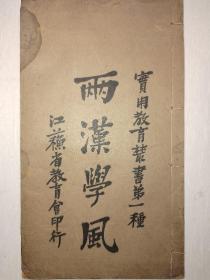 實用教育叢書第一種
兩漢學風
江蘇省教育會印行